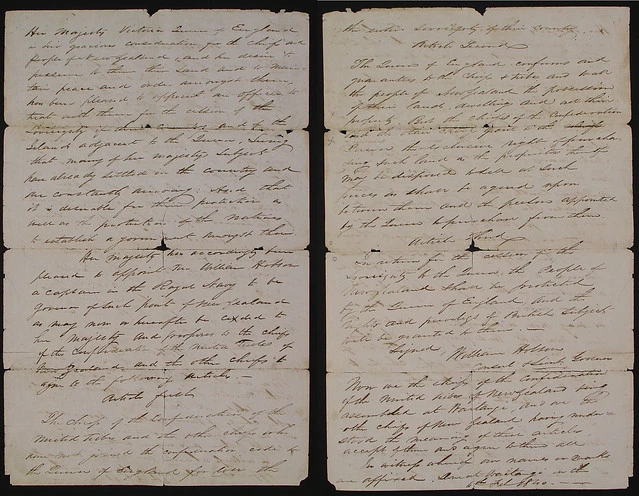 Her Majesty Victoria Queen of England
in her gracious consideration for the chiefs and
people of New Zealand, and her desire to
preserve to them their land and to main
tain peace and order amongst them,
has been pleased to appoint an officer to
treat with them for the cession of the
Sovereignty of their country and of the
Islands adjacent to the Queen, Seeing
that many of her Majesty's Subjects
have already settled in the country and
are constantly arriving: And that
it is desirable for their protection as
well as the protection of the Natives
to establish a government amongst them
Her Majesty has accordingly been
pleased to appoint Mr William Hobson
a captain in the Royal Navy to be
Governor of such parts of New Zealand
as may now or hereafter be ceded to
her Majesty and proposes to the chiefs
of the Confederation of the United Tribes of
New Zealand and the other chiefs to
agree to the following articles.—
Article first
The chiefs of the Confederation of the
United tribes and the other chiefs who
have not joined the confederation cede to
the Queen of England for ever the
the entire Sovreignty of their country.
Article Second
The Queen of England confirms and
guarantees to the chiefs & tribes and to all
the people of New Zealand the possession
of their lands, dwellings and all their
property. But the chiefs of the Confederation
and the other chiefs grant to the
Queen the exclusive right of purcha
sing such land as the proprietors thereof
may be disposed to sell at such
prices as shall be agreed upon
between them and the persons appointed
by the Queen to purchase from them
Article Third
In return for the cession of the
Sovreignty to the Queen, the People of
New Zealand shall be protected
by the Queen of England and the
rights and privileges of British Subjects
will be granted to them.—
Signed, William Hobson
Consul & Lieut. Governor
Now we the chiefs of the Confederation
of the United tribes of New Zealand being
assembled at Waitangi and we the
other chiefs of New Zealand having under
stood the meaning of these articles
accept of them and agree to them all
In witness whereof our names or marks
are affixed. Done at Waitangi on the
6th Feb. 1840.—